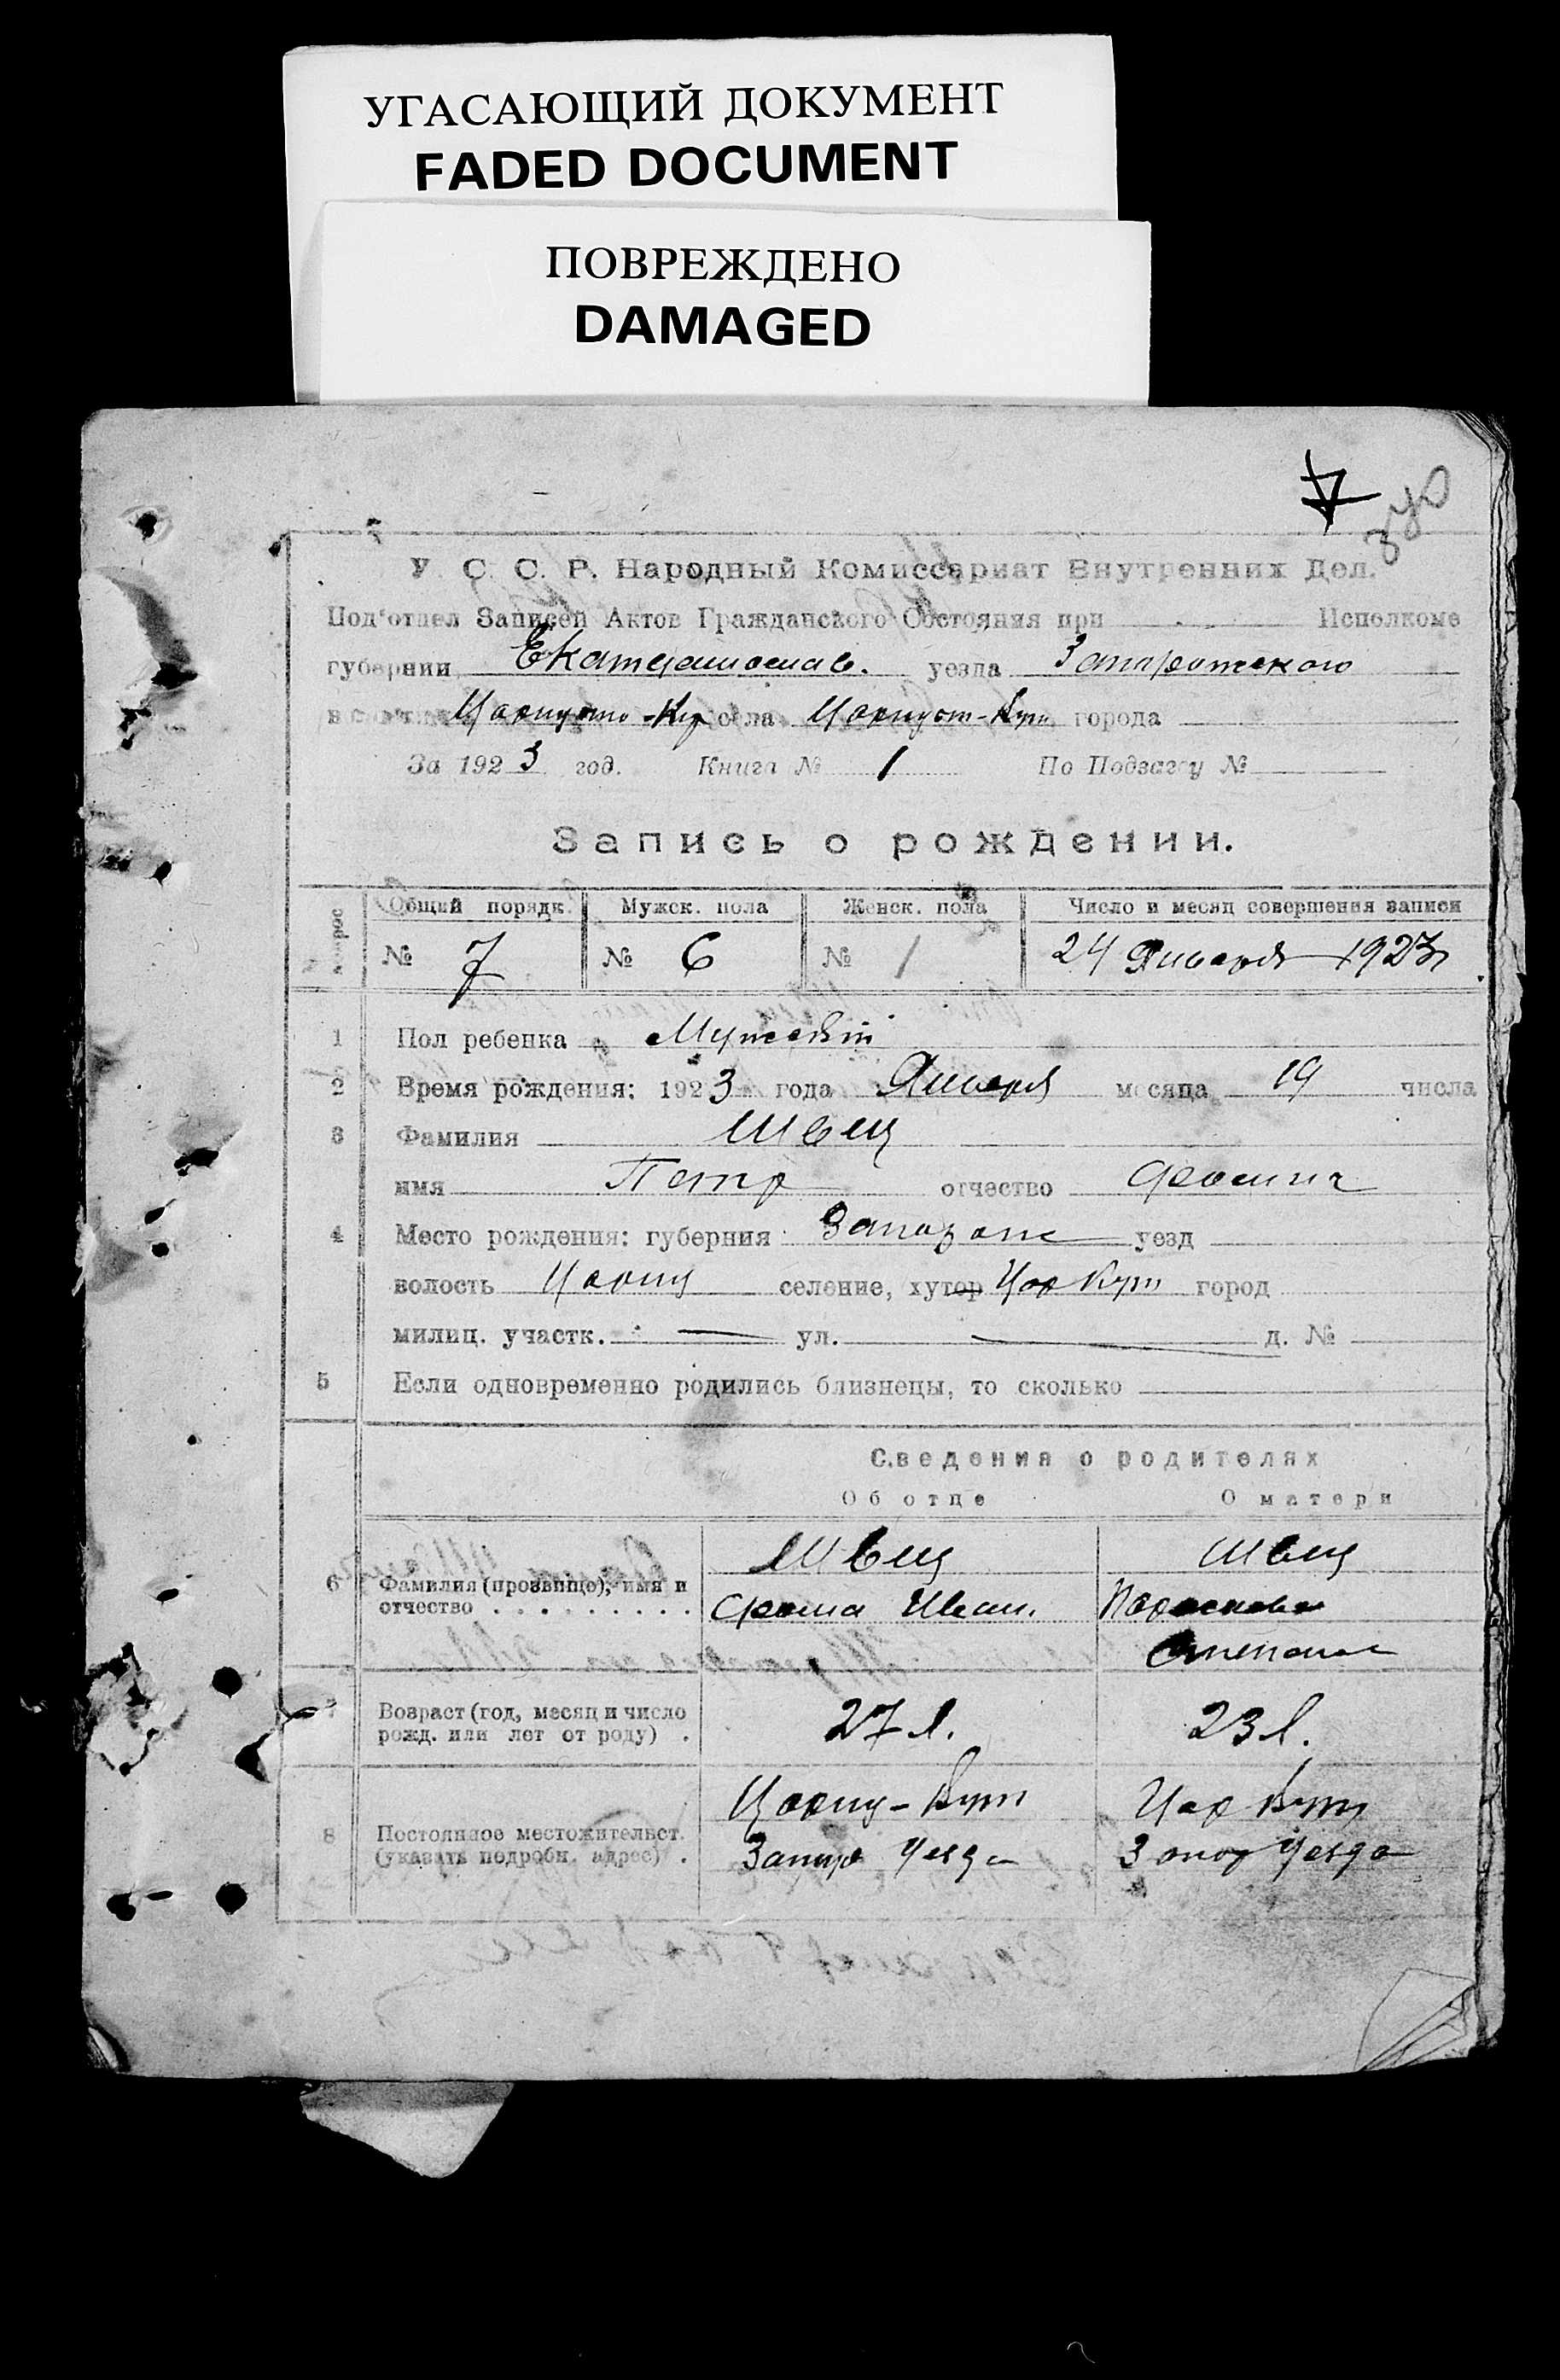 УГАСАЮЩИЙ ДОКУМЕНТ
FADED DOCUMENT
ПОВРЕЖДЕНО
DAMAGED
У. С. С. Р. Народный Комиссариат Внутренних Дел.
Под'отдел Записей Актов Гражданского Состояния при Исполкоме
губернии Екатеринослав. уезда Запорожского
села города
За 1923 год. Книга № 1 По Подзагсу №
Запись о рождении.
Общий порядк. Мужск. пола Женск. пола Число и месяц совершения записи
№ 7 № 6 № 1 24 Января 1923
1 Пол ребенка Мужской
2 Время рождения: 1923 года Января месяца 19 числа
3 Фамилия Швец
имя Петр отчество
4 Место рождения: губерния Запорож уезд
волость селение, хутор Цар Кут город
милиц. участк. ул. д. №
5 Если одновременно родились близнецы, то сколько
Сведения о родителях
Об отце О матери
6 Фамилия (прозвище), имя и отчество Швец Швец
Иван. Параскева
7 Возраст (год, месяц и число рожд. или лет от роду) 27 л. 23 л.
8 Постоянное местожительст. (указать подробн. адрес) Кут Цар Кут
Запор Уезда Запор Уезда